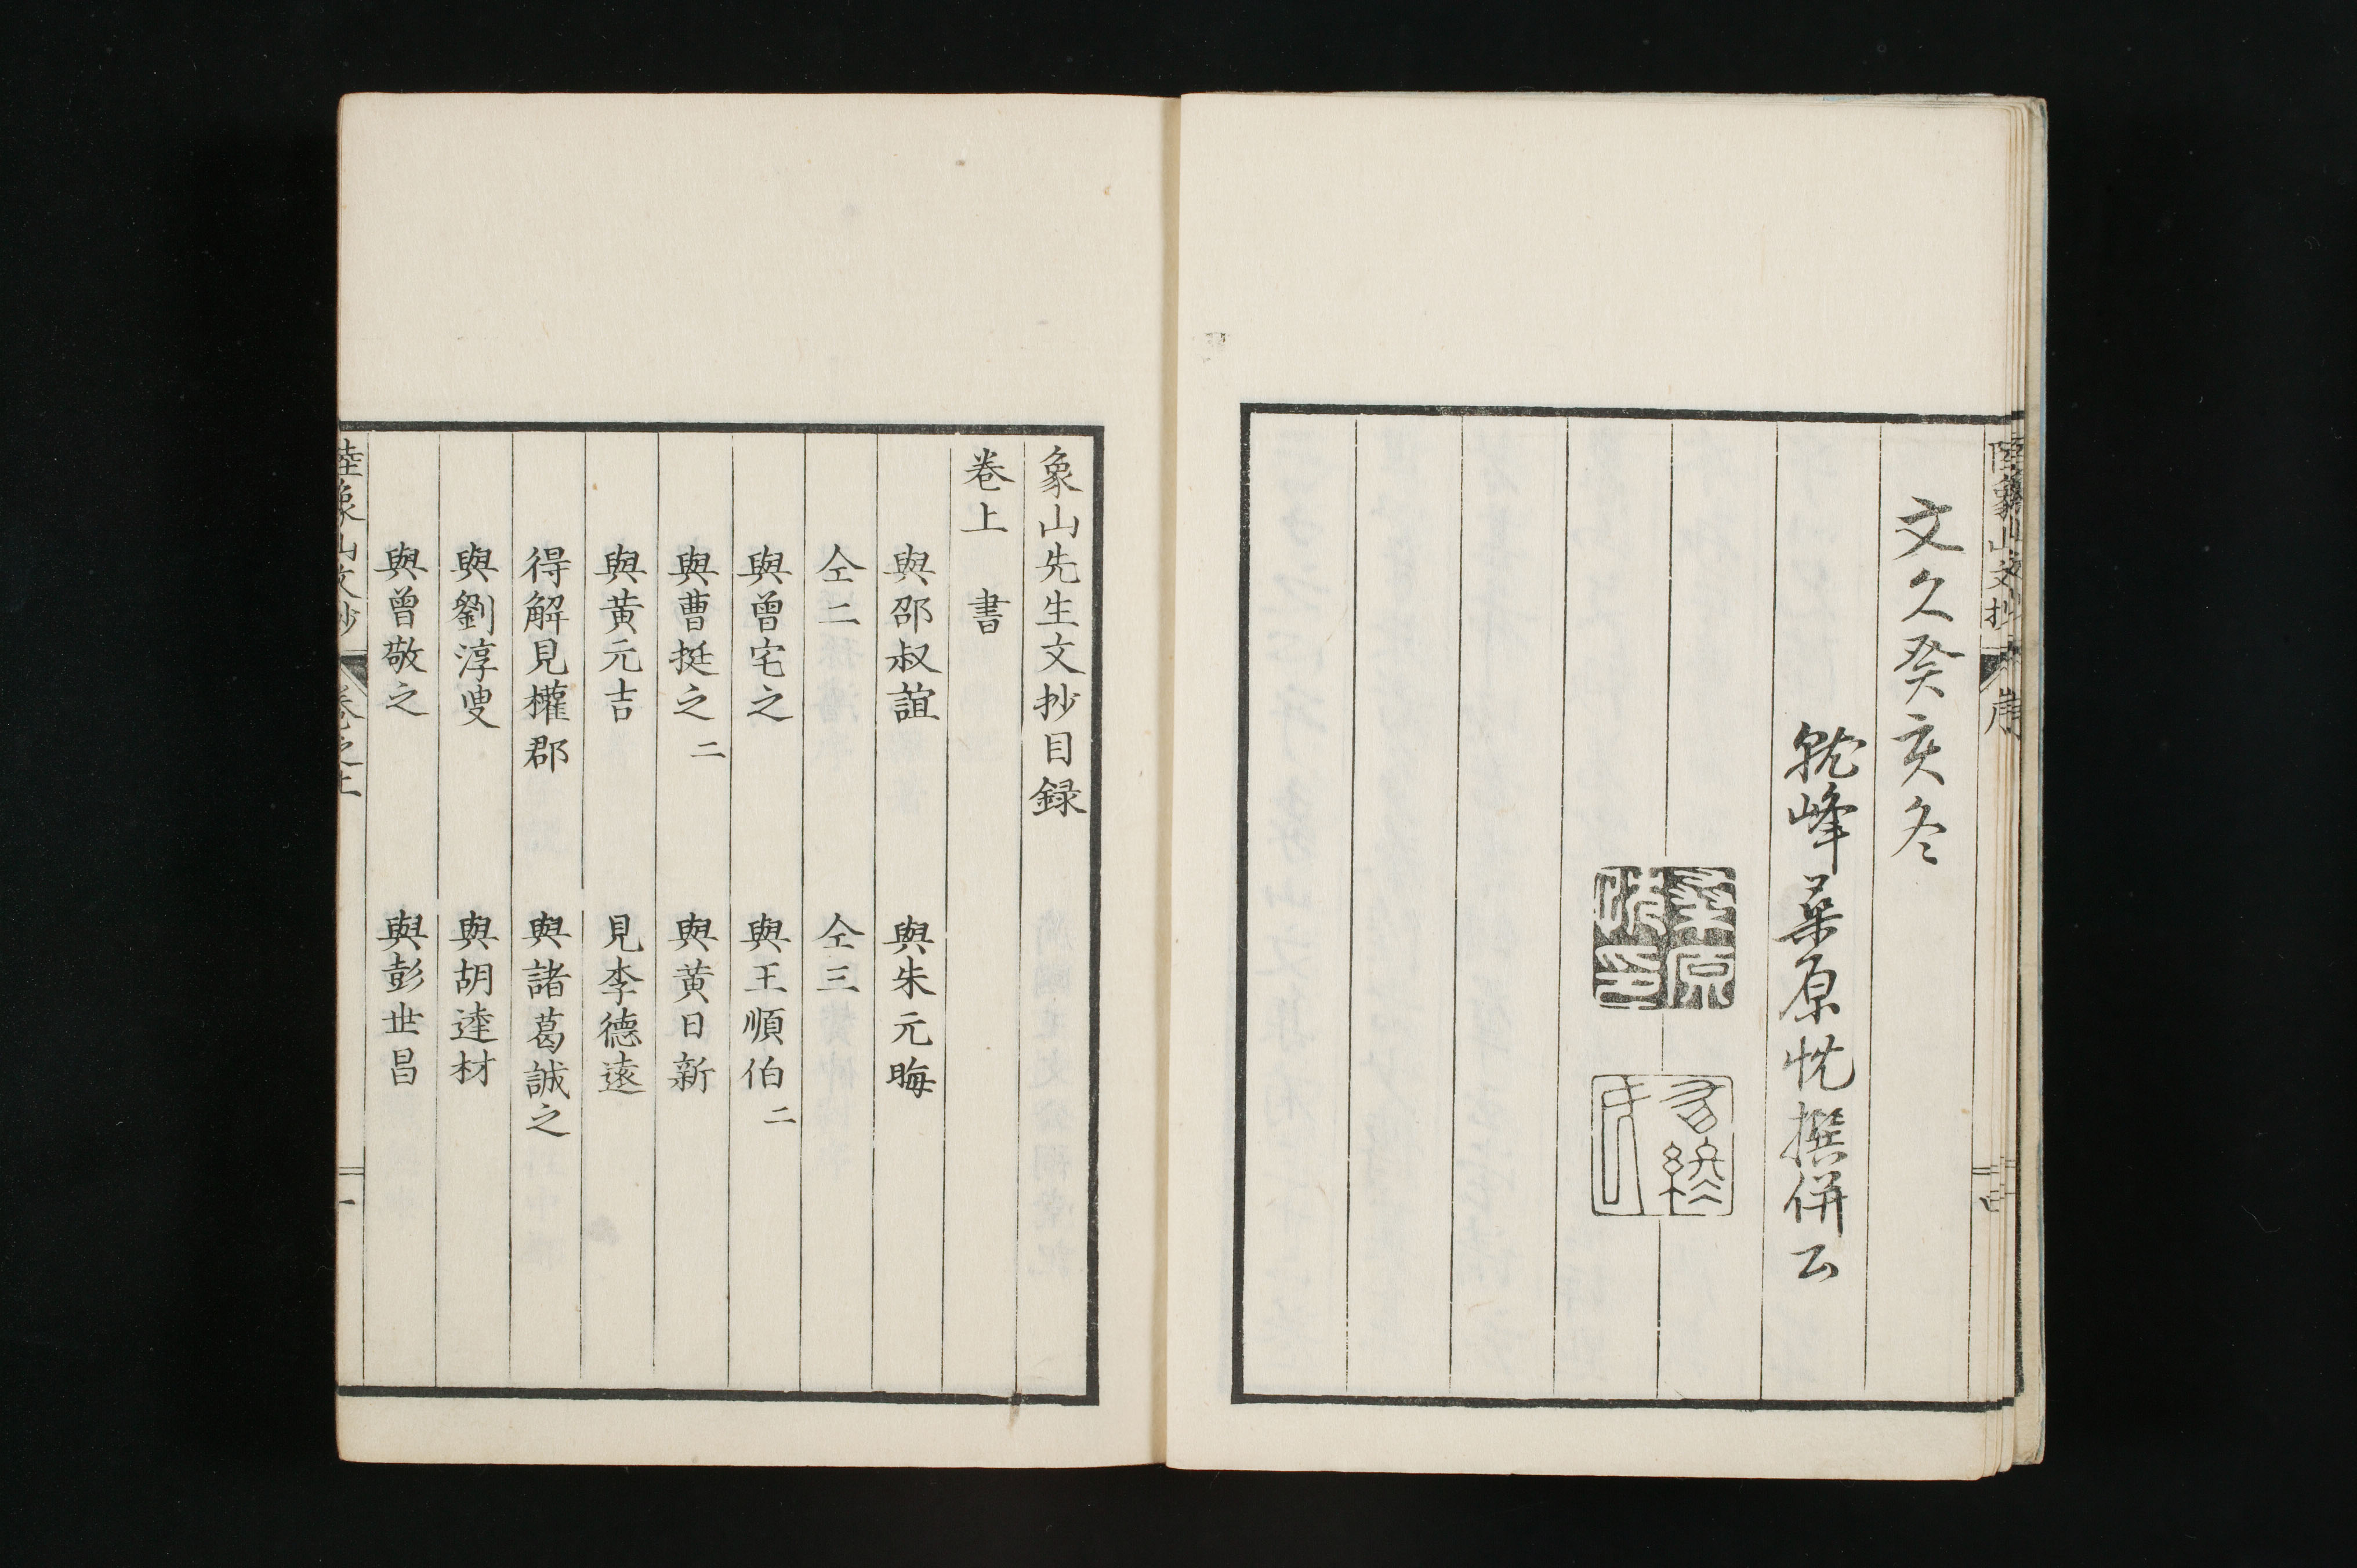 陸象山文抄
序
文久癸亥冬
鷲峰桒原忱撰併云
桒原忱印
象山先生文抄目録
卷上　書
與邵叔誼　與朱元晦
仝二　仝三
與曾宅之　與王順伯二
與曹挺之二　與黄日新
與黄元吉　見李德遠
得解見權郡　與諸葛誠之
與劉淳叟　與胡達材
與曾敬之　與彭世昌
陸象山文抄
卷之上
一